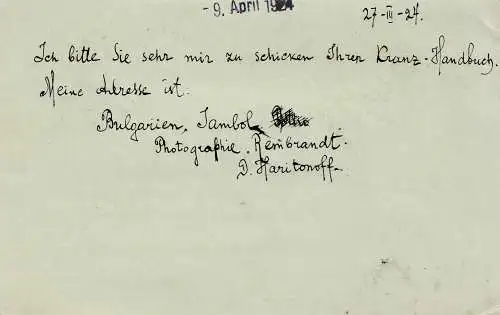 - 9. April 1924
27-III-24.
Ich bitte Sie sehr mir zu schicken Ihrer Kranz-Handbuch.
Meine Adresse ist.
Bulgarien, Jambol
Photographie, Rembrandt.
D. Haritonoff